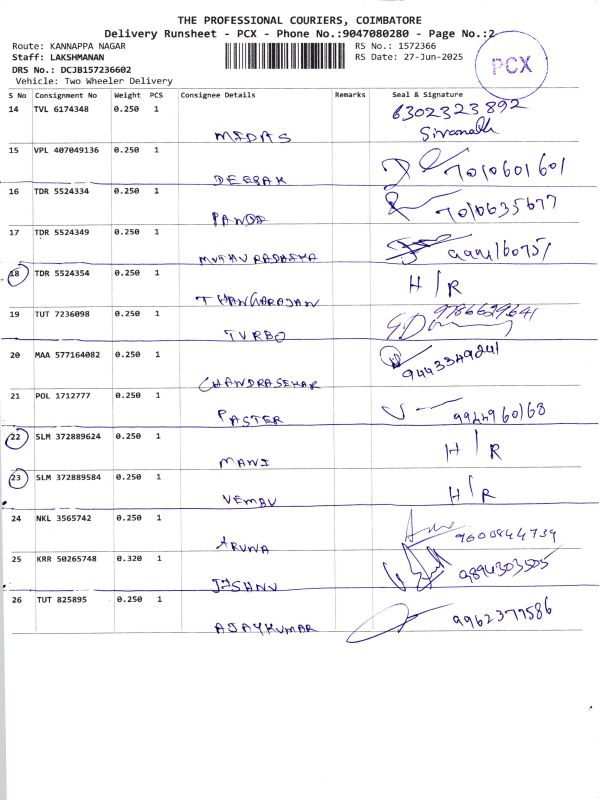 THE PROFESSIONAL COURIERS, COIMBATORE
Delivery Runsheet - PCX - Phone No.:9047080280 - Page No.:2
Route: KANNAPPA NAGAR RS No.: 1572366
Staff: LAKSHMANAN RS Date: 27-Jun-2025
DRS No.: DCJB157236602
Vehicle: Two Wheeler Delivery
PCX
S No Consignment No Weight PCS Consignee Details Remarks Seal & Signature
14 TVL 6174348 0.250 1 6302323892
MIDAS Sivanath
15 VPL 407049136 0.250 1
DEEPAK 7010601601
16 TDR 5524334 0.250 1
PANDI 7010635677
17 TDR 5524349 0.250 1
18 TDR 5524354 0.250 1 H/R
THANGARAJAN
19 TUT 7236098 0.250 1 9786629641
TURBO
20 MAA 577164082 0.250 1
CHANDRASEKAR 9443349241
21 POL 1712777 0.250 1
PASTER 9944960168
22 SLM 372889624 0.250 1 H/R
MANI
23 SLM 372889584 0.250 1
VEMBU H/R
24 NKL 3565742 0.250 1
ARUNA 9600844739
25 KRR 50265748 0.320 1 9894303505
JISHNU
26 TUT 825895 0.250 1 9962377586
AJAYKUMAR